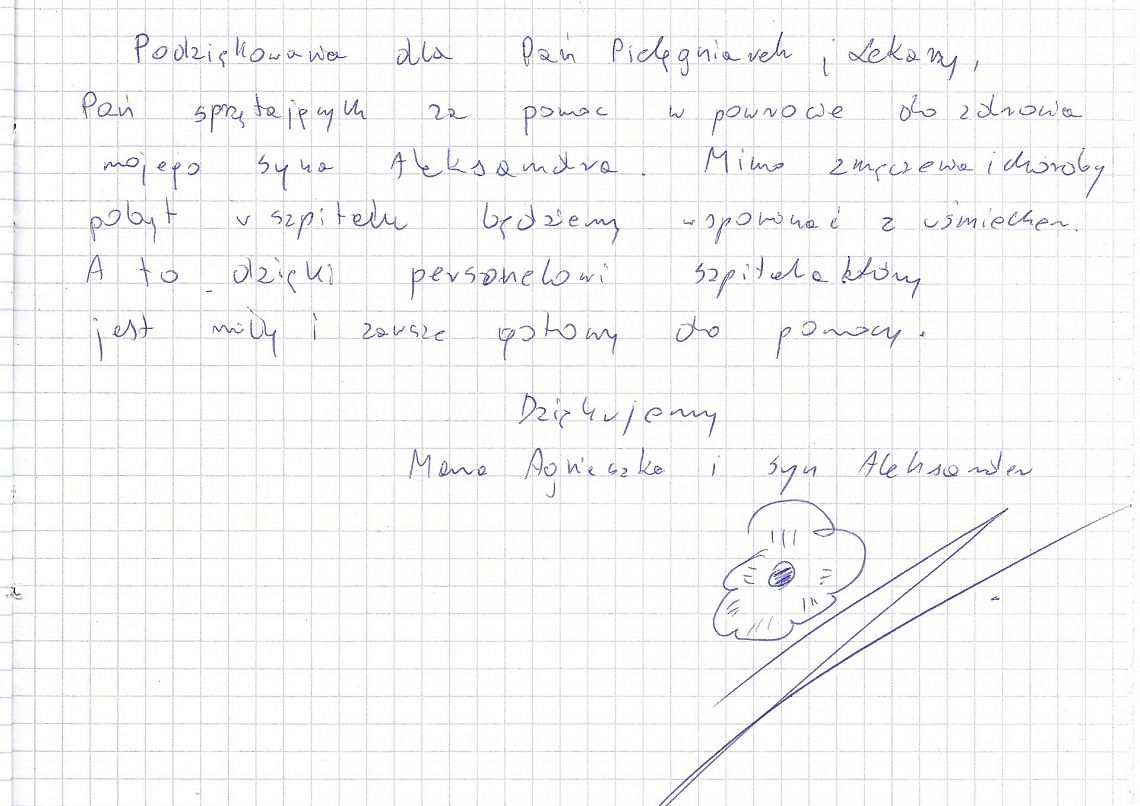 Podziękowania dla Pań Pielęgniarek i Lekarzy,
Pań sprzętających za pomoc w powrocie do zdrowia
mojego syna Aleksandra. Mimo zmęczenia i choroby
pobyt w szpitalu będziemy wspominać z uśmiechem.
A to dzięki personelowi szpitala który
jest miły i zawsze gotowy do pomocy.
Dziękujemy
Mama Agnieszka i syn Aleksander